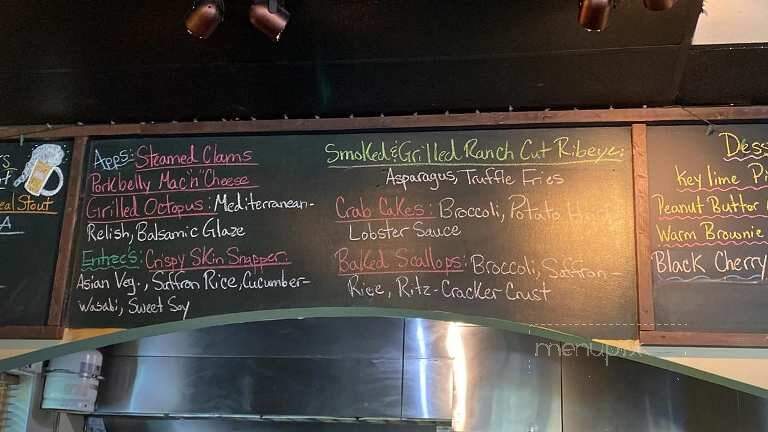 eal Stout
Apps: Steamed Clams
Porkbelly Mac "n" Cheese
Grilled Octopus: Mediterranean-
Relish, Balsamic Glaze
Entree's: Crispy Skin Snapper:
Asian Veg., Saffron Rice, Cucumber-
Wasabi, Sweet Soy
Smoked & Grilled Ranch Cut Ribeye:
Asparagus, Truffle Fries
Crab Cakes: Broccoli, Potato
Lobster Sauce
Baked Scallops: Broccoli, Saffron-
Rice, Ritz-Cracker Crust
Dess
Key lime Pi
Peanut Butter
Warm Brownie
Black Cherry
menupix